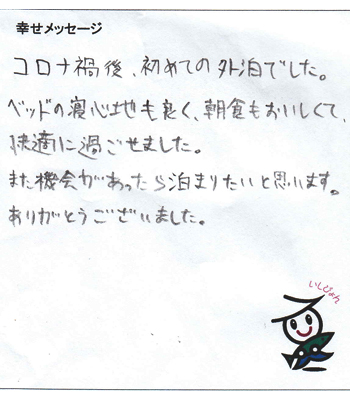 幸せメッセージ
コロナ禍後、初めての外泊でした。
ベッドの寝心地も良く、朝食もおいしくて、
快適に過ごせました。
また機会があったら泊まりたいと思います。
ありがとうございました。
いしぴょん